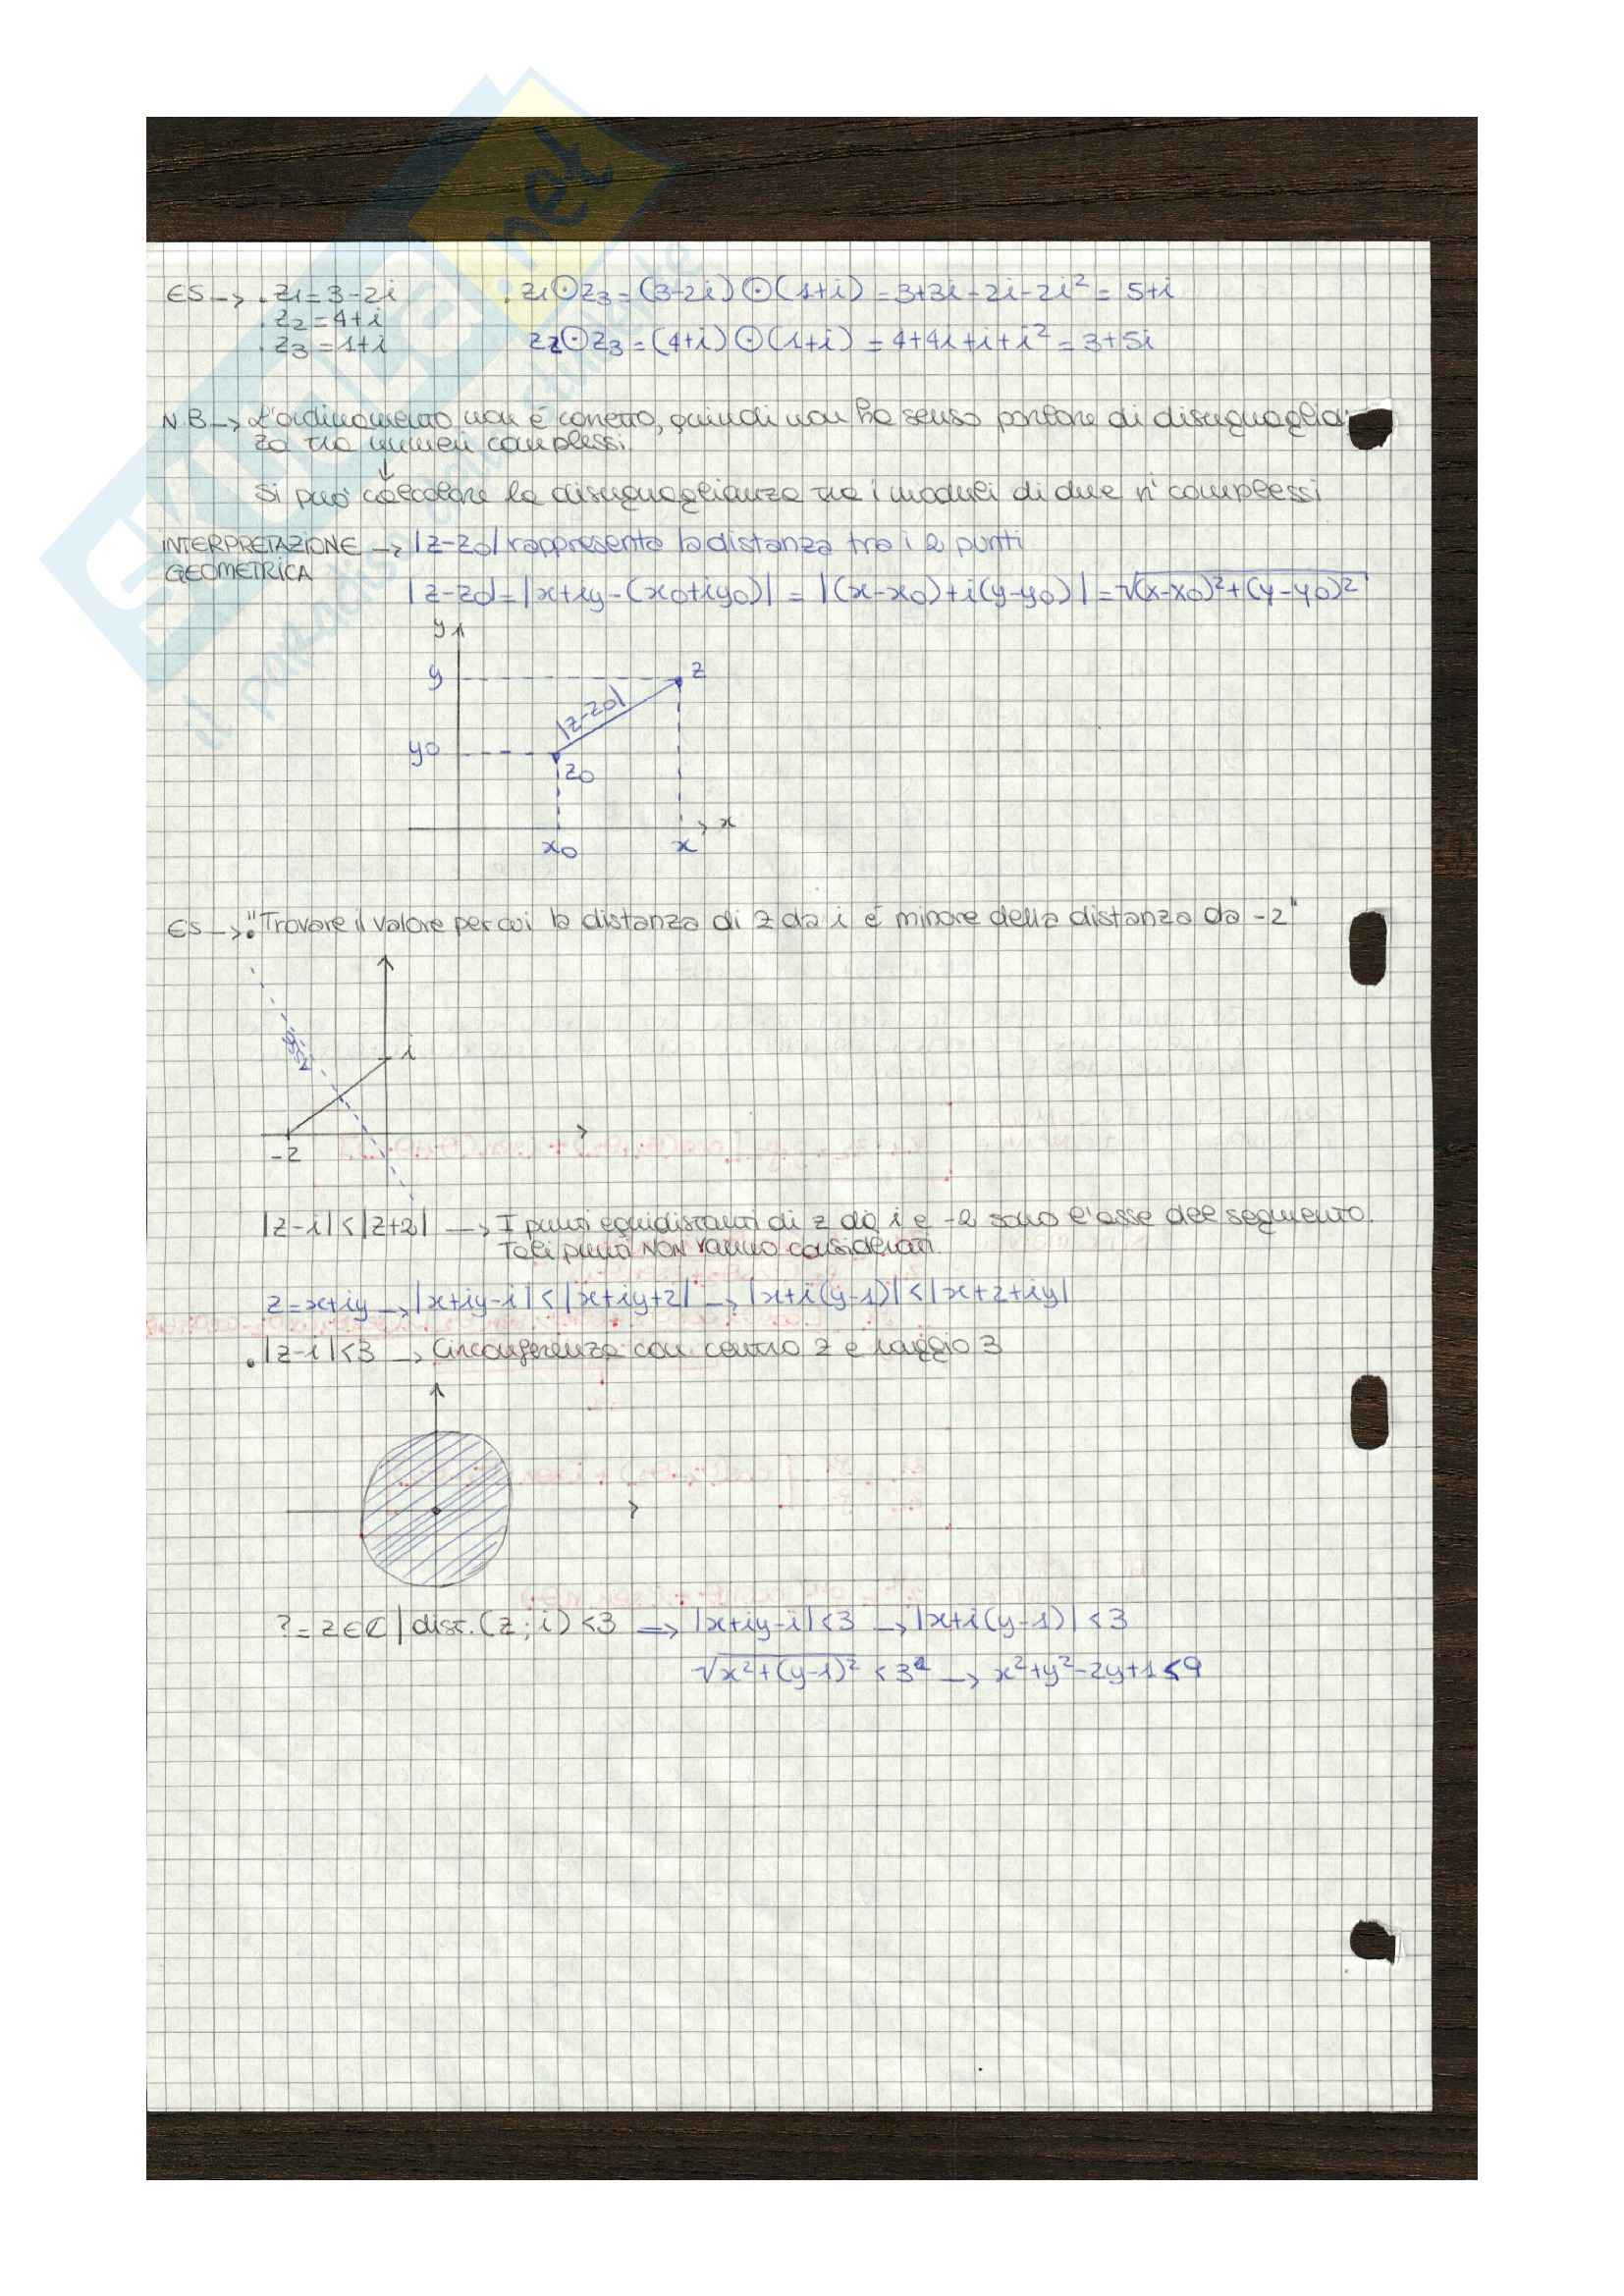 ES → . z1 = 3-2i   . z1⊙z3 = (3-2i)⊙(1+i) = 3+3i-2i-2i² = 5+i
. z2 = 4+i
. z3 = 1+i   z2⊙z3 = (4+i)⊙(1+i) = 4+4i+i+i² = 3+5i
N.B → L'ordinamento non é corretto, quindi non ha senso parlare di disuguaglian
za tra numeri complessi.
↓
Si può calcolare la disuguaglianza tra i moduli di due n° complessi
INTERPRETAZIONE → |z-z0| rappresenta la distanza tra i 2 punti
GEOMETRICA
|z-z0| = |x+iy-(x0+iy0)| = |(x-x0)+i(y-y0)| = √(x-x0)²+(y-y0)²
y
y z
|z-z0|
y0
z0
x
x0 x
ES → . "Trovare il valore per cui la distanza di z da i é minore della distanza da -2"
i
-2
|z-i| < |z+2| → I punti equidistanti di z da i e -2 sono l'asse del segmento.
Tali punti NON vanno considerati.
z = x+iy → |x+iy-i| < |x+iy+2| → |x+i(y-1)| < |x+2+iy|
. |z-i| < 3 → Circonferenza con centro z e raggio 3
? = z∈ℂ | dist. (z; i) < 3 ⇒ |x+iy-i| < 3 → |x+i(y-1)| < 3
√x²+(y-1)² < 3² → x²+y²-2y+1 < 9